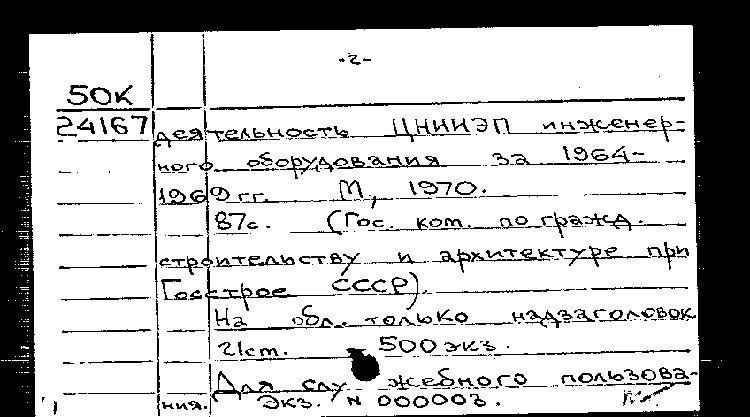 -2-
50К
24167
деятельность ЦНИИЭП инженер-
ного оборудования за 1964-
1969 гг. М, 1970.
87с. (Гос. ком. по гражд.
строительству и архитектуре при
Госстрое СССР).
На обл. только надзаголовок
21см. 500 экз.
Для слу жебного пользова-
ния. Экз. N 000003.